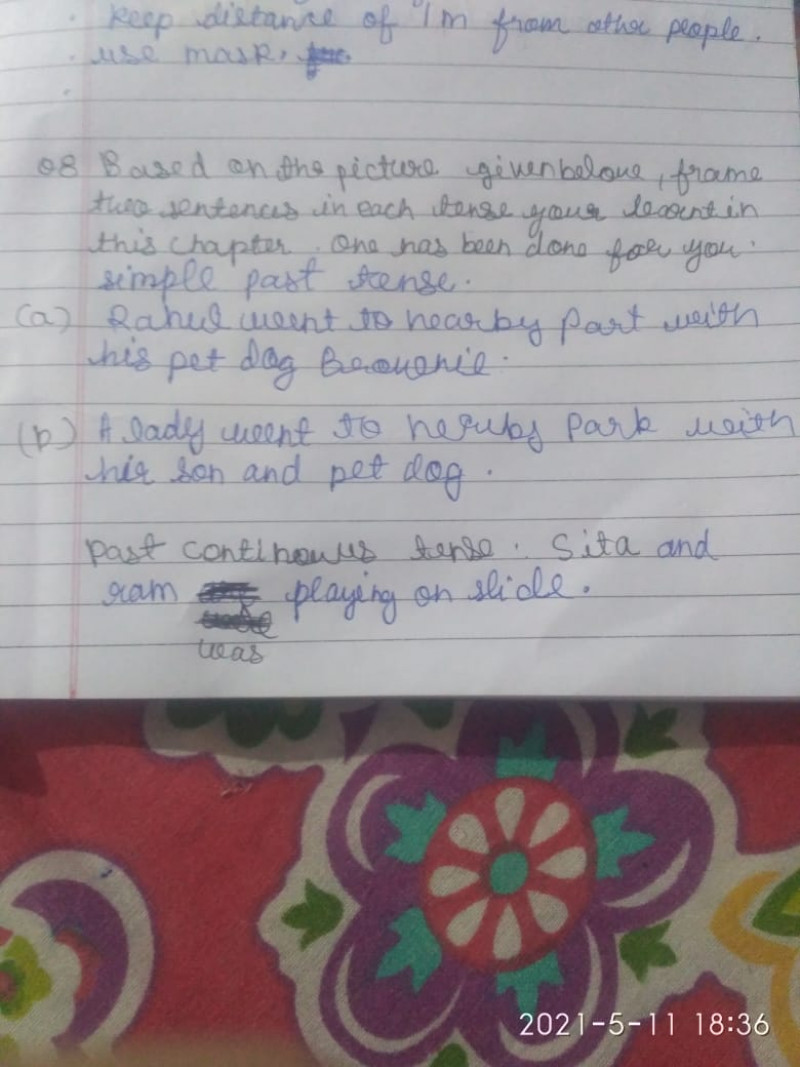 . keep distance of 1m from other people.
. use mask.
.
Q8 Based on the picture given belowe, frame
two sentences in each tense your learnt in
this chapter. One has been done for you.
simple past tense.
(a) Rahul went to nearby Part with
his pet dog Brownie.
(b) A lady went to nerby Park with
his son and pet dog.
past continours tense. Sita and
ram playing on slide.
was
2021-5-11 18:36